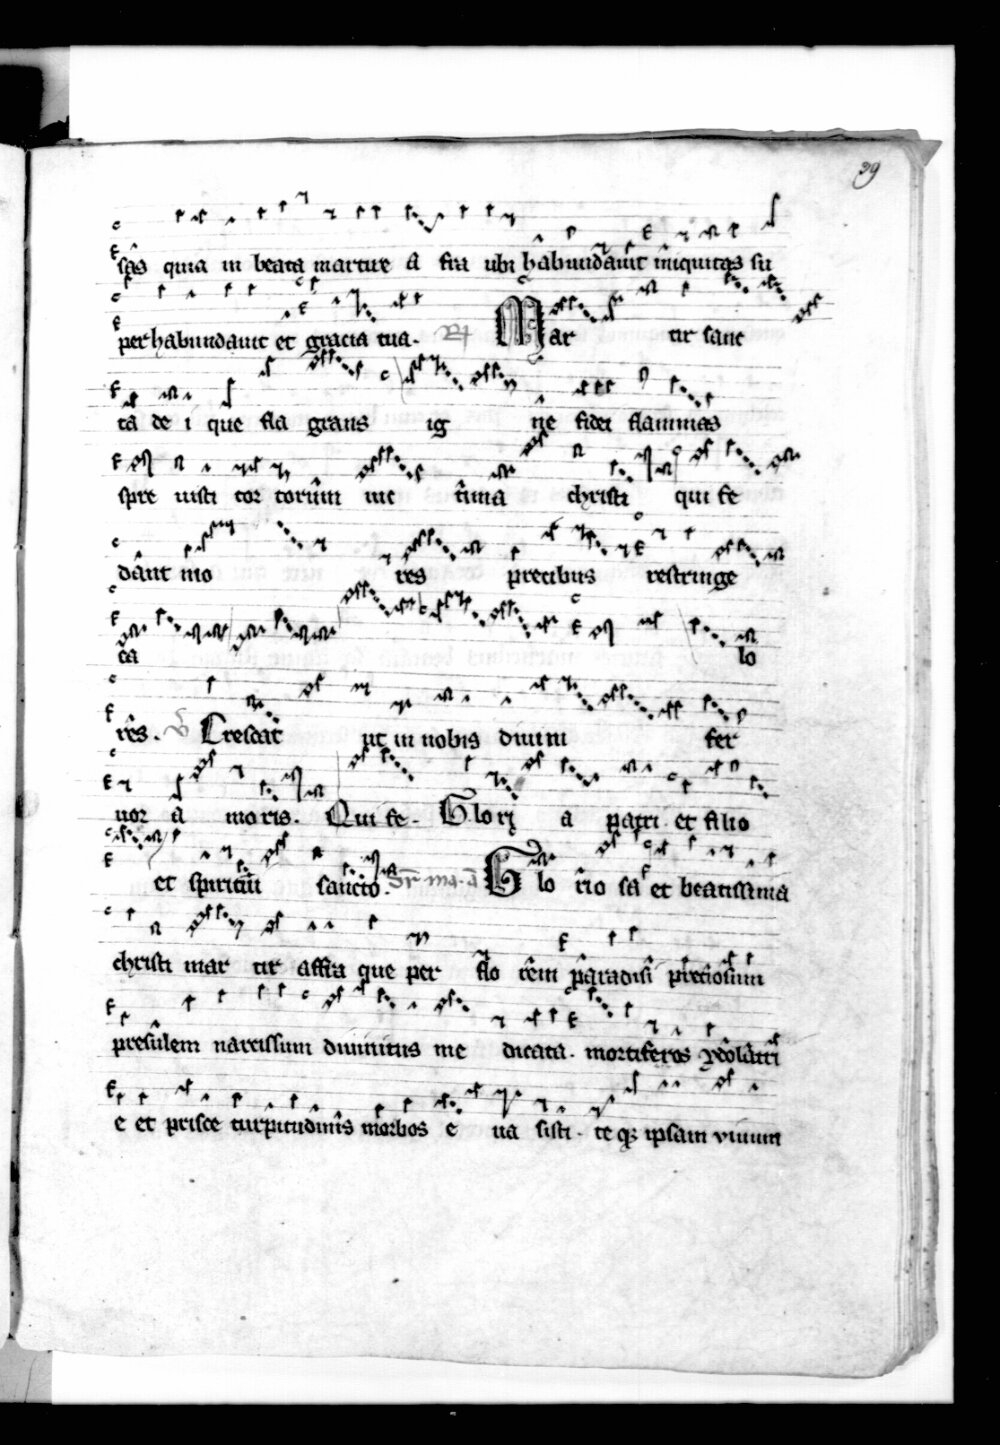 39
sas quia in beata martire a fra ubi habundavit iniquitas su
per habundavit et gracia tua. R Mar tir sanc
ta de i que fla grans ig ne fidei flammas
spre uisti tor torum me tima christi qui fe
dant mo res precibus restringe
ca lo
res. V Crescat ut in nobis divini fer
uor a moris. Qui fe. Glori a patri et filio
et spiritui sancto. Glo rio sa et beatissima
christi mar tir affra que per flo rem paradisi preciosum
presulem narcissum divinitus me dicata. mortiferos ydolatri
e et prisce turpitudinis morbos e ua sisti. te qz ipsam vivum